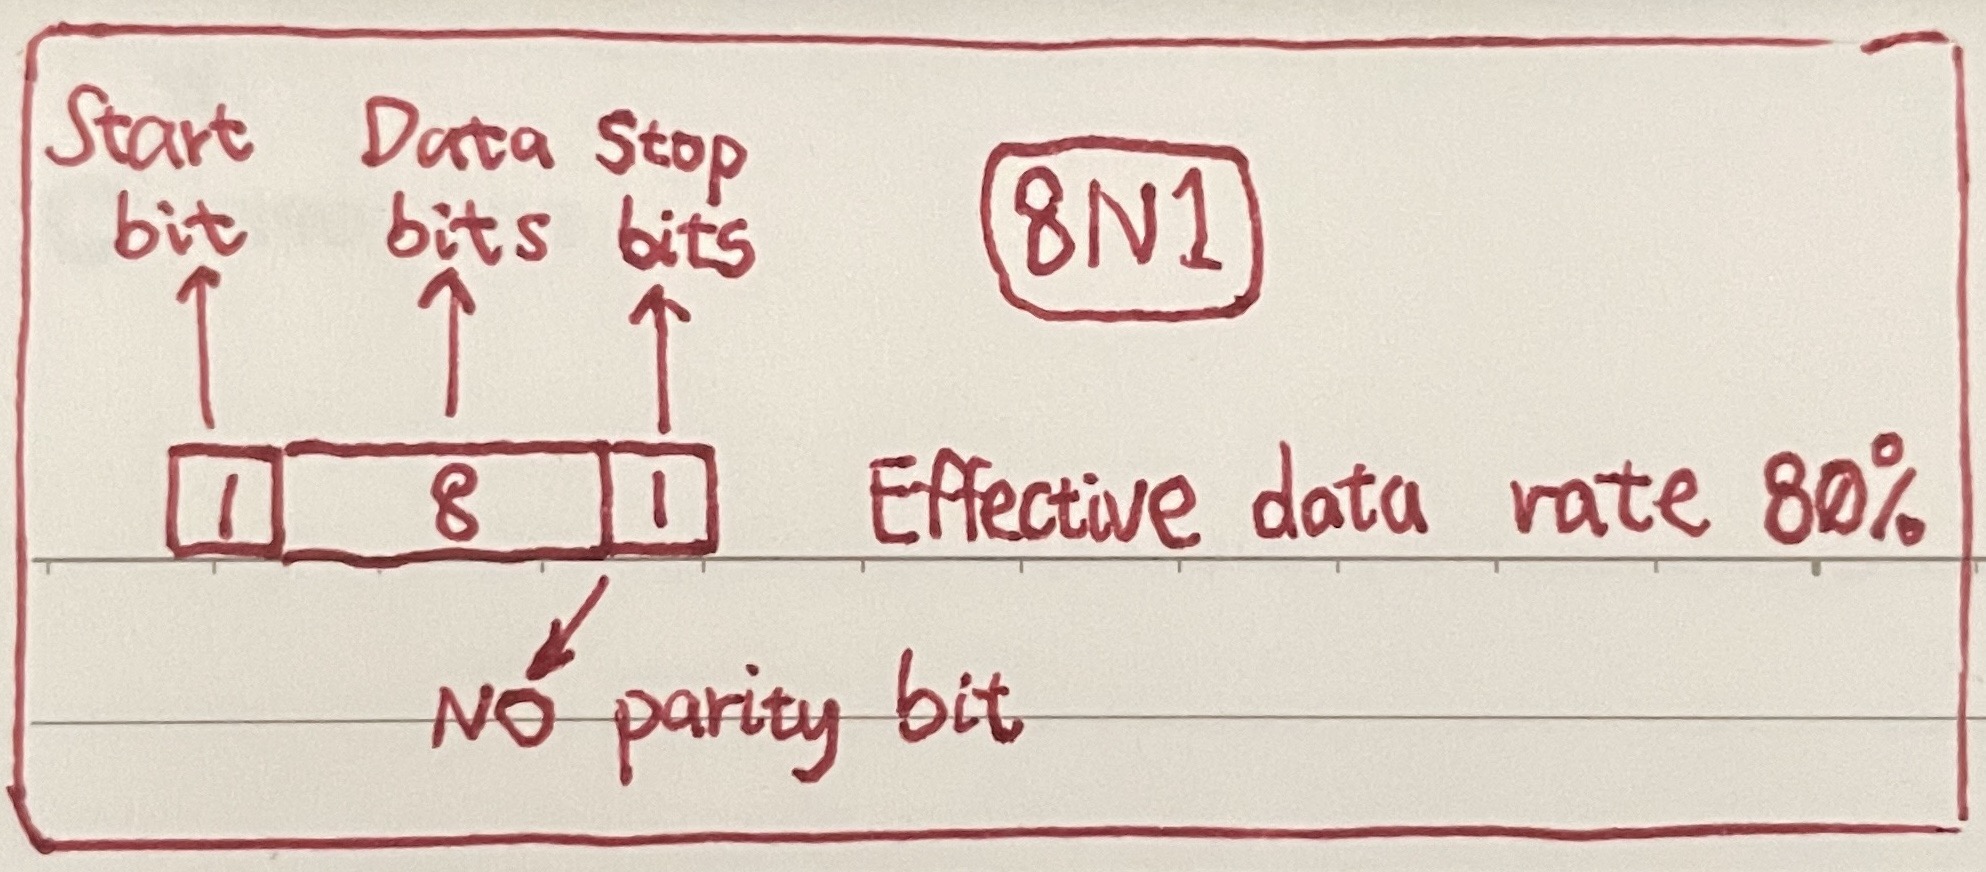 Start
bit
Data
bits
Stop
bits
8N1
1 8 1
Effective data rate 80%
NO parity bit